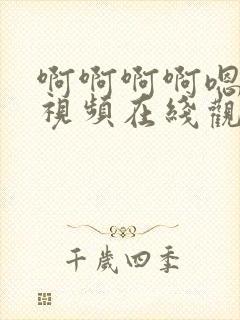 啊啊啊啊嗯
視頻在綫觀
千歲四季